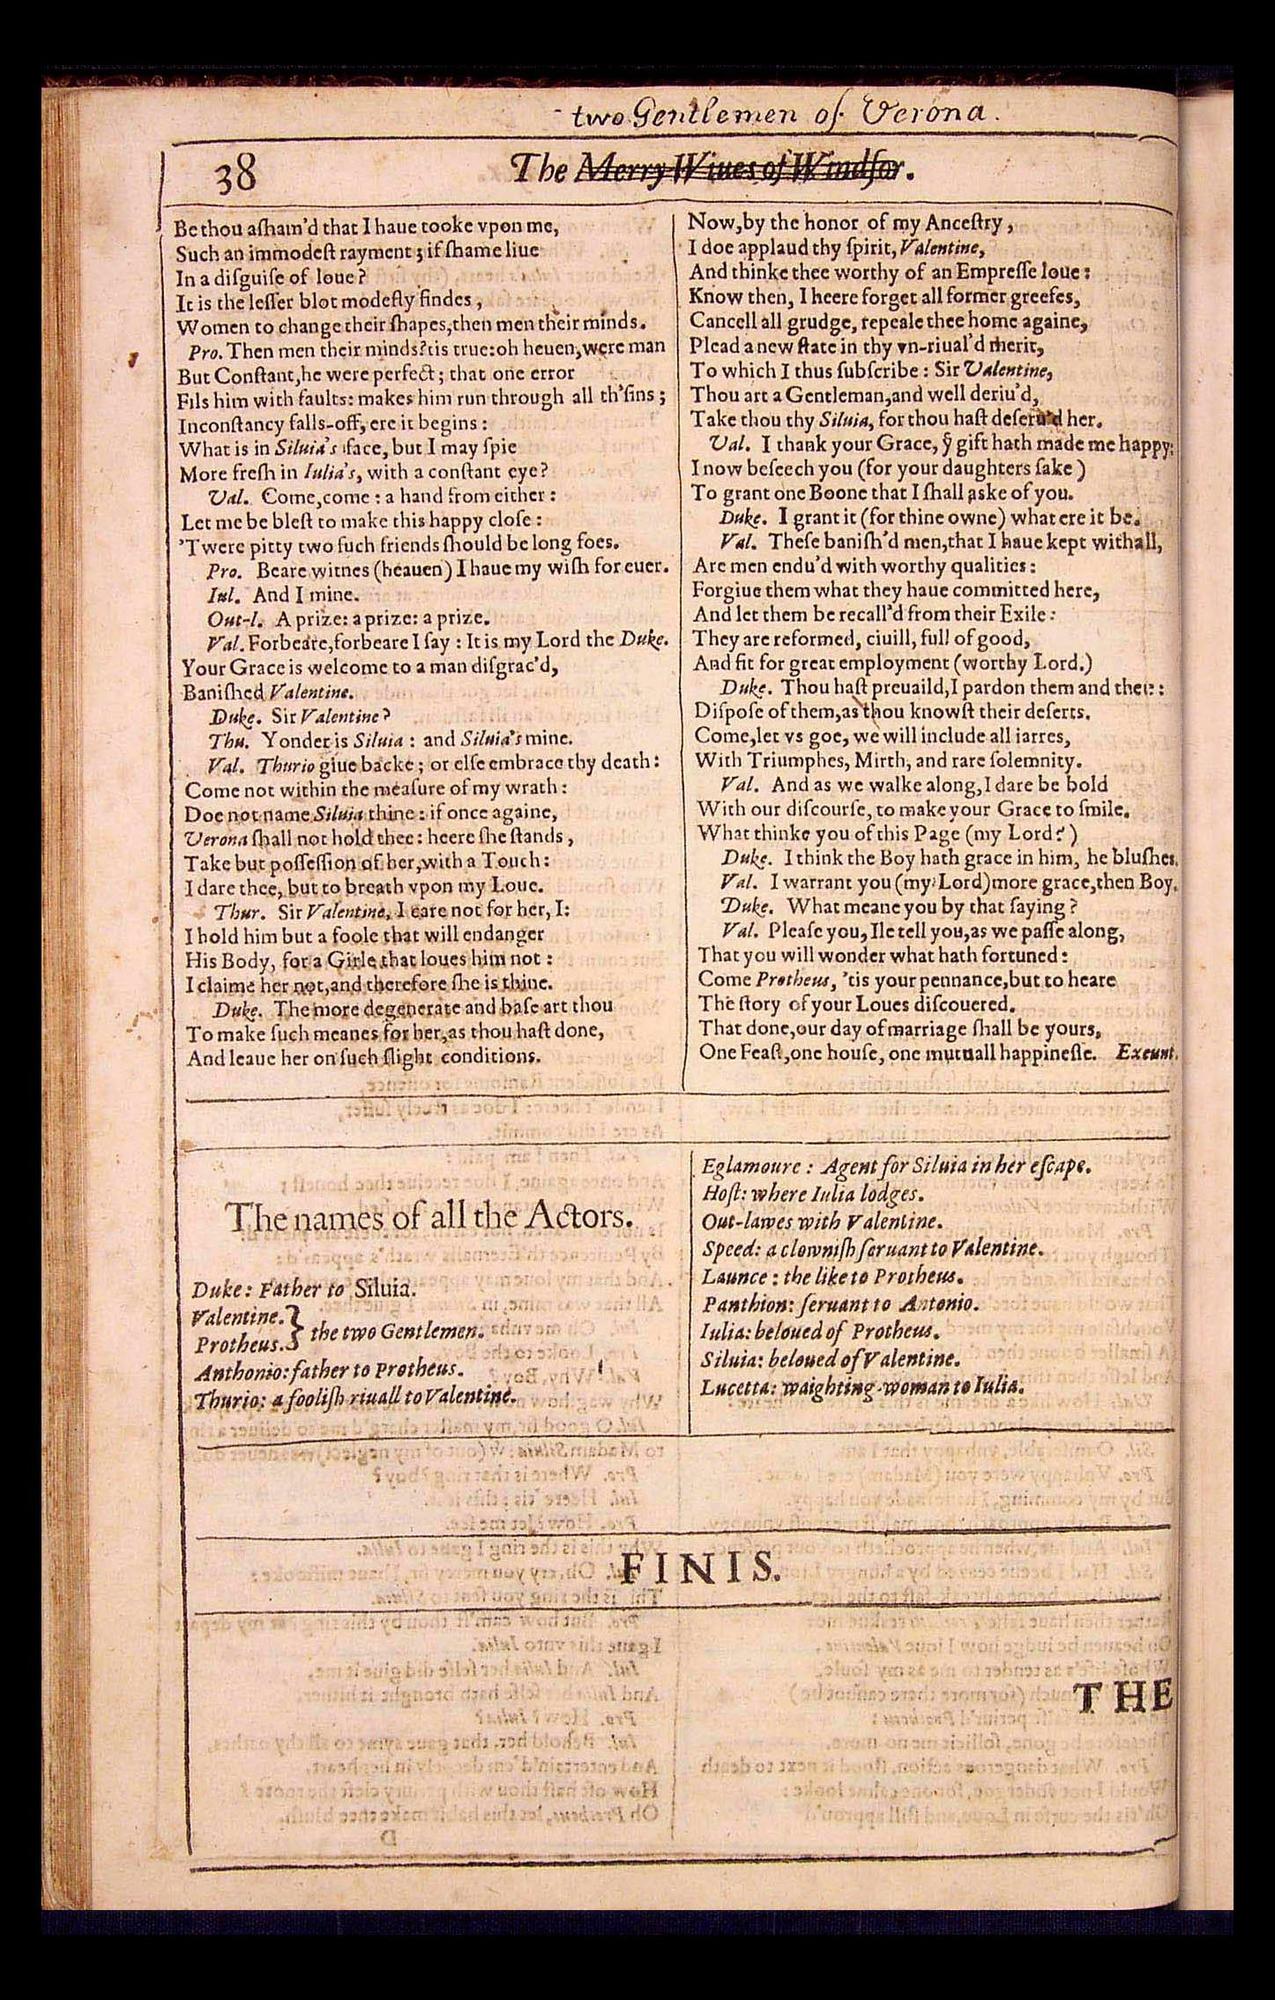 two Gentlemen of Verona.
38
The Merry Wiues of Windsor.
Be thou aſham'd that I haue tooke vpon me,
Such an immodeſt rayment; if ſhame liue
In a diſguiſe of loue?
It is the leſſer blot modeſty findes,
Women to change their ſhapes, then men their minds.
Pro. Then men their minds? tis true: oh heuen, were man
But Conſtant, he were perfect; that one error
Fils him with faults: makes him run through all th'ſins;
Inconſtancy falls-off, ere it begins:
What is in Siluia's face, but I may ſpie
More freſh in Iulia's, with a conſtant eye?
Val. Come, come: a hand from either:
Let me be bleſt to make this happy cloſe:
'Twere pitty two ſuch friends ſhould be long foes.
Pro. Beare witnes (heauen) I haue my wiſh for euer.
Iul. And I mine.
Out-l. A prize: a prize: a prize.
Val. Forbeare, forbeare I ſay: It is my Lord the Duke.
Your Grace is welcome to a man diſgrac'd,
Baniſhed Valentine.
Duke. Sir Valentine?
Thu. Yonder is Siluia: and Siluia's mine.
Val. Thurio giue backe; or elſe embrace thy death:
Come not within the meaſure of my wrath:
Doe not name Siluia thine: if once againe,
Verona ſhall not hold thee: heere ſhe ſtands,
Take but poſſeſſion of her, with a Touch:
I dare thee, but to breath vpon my Loue.
Thur. Sir Valentine, I care not for her, I:
I hold him but a foole that will endanger
His Body, for a Girle that loues him not:
I claime her not, and therefore ſhe is thine.
Duke. The more degenerate and baſe art thou
To make ſuch meanes for her, as thou haſt done,
And leaue her on ſuch ſlight conditions.
Now, by the honor of my Anceſtry,
I doe applaud thy ſpirit, Valentine,
And thinke thee worthy of an Empreſſe loue:
Know then, I heere forget all former greefes,
Cancell all grudge, repeale thee home againe,
Plead a new ſtate in thy vn-riual'd merit,
To which I thus ſubſcribe: Sir Valentine,
Thou art a Gentleman, and well deriu'd,
Take thou thy Siluia, for thou haſt deſeru'd her.
Val. I thank your Grace, ẏ gift hath made me happy:
I now beſeech you (for your daughters ſake)
To grant one Boone that I ſhall aske of you.
Duke. I grant it (for thine owne) what ere it be.
Val. Theſe baniſh'd men, that I haue kept withall,
Are men endu'd with worthy qualities:
Forgiue them what they haue committed here,
And let them be recall'd from their Exile:
They are reformed, ciuill, full of good,
And fit for great employment (worthy Lord.)
Duke. Thou haſt preuaild, I pardon them and thee:
Diſpoſe of them, as thou knowſt their deſerts.
Come, let vs goe, we will include all iarres,
With Triumphes, Mirth, and rare ſolemnity.
Val. And as we walke along, I dare be bold
With our diſcourſe, to make your Grace to ſmile.
What thinke you of this Page (my Lord?)
Duke. I think the Boy hath grace in him, he bluſhes.
Val. I warrant you (my Lord) more grace, then Boy.
Duke. What meane you by that ſaying?
Val. Pleaſe you, Ile tell you, as we paſſe along,
That you will wonder what hath fortuned:
Come Protheus, 'tis your pennance, but to heare
The ſtory of your Loues diſcouered.
That done, our day of marriage ſhall be yours,
One Feaſt, one houſe, one mutuall happineſſe. Exeunt.
The names of all the Actors.
Duke: Father to Siluia.
Valentine. }
Protheus. } the two Gentlemen.
Anthonio: father to Protheus.
Thurio: a fooliſh riuall to Valentine.
Eglamoure: Agent for Siluia in her eſcape.
Hoſt: where Iulia lodges.
Out-lawes with Valentine.
Speed: a clowniſh ſeruant to Valentine.
Launce: the like to Protheus.
Panthion: ſeruant to Antonio.
Iulia: beloued of Protheus.
Siluia: beloued of Valentine.
Lucetta: waighting-woman to Iulia.
FINIS.
THE